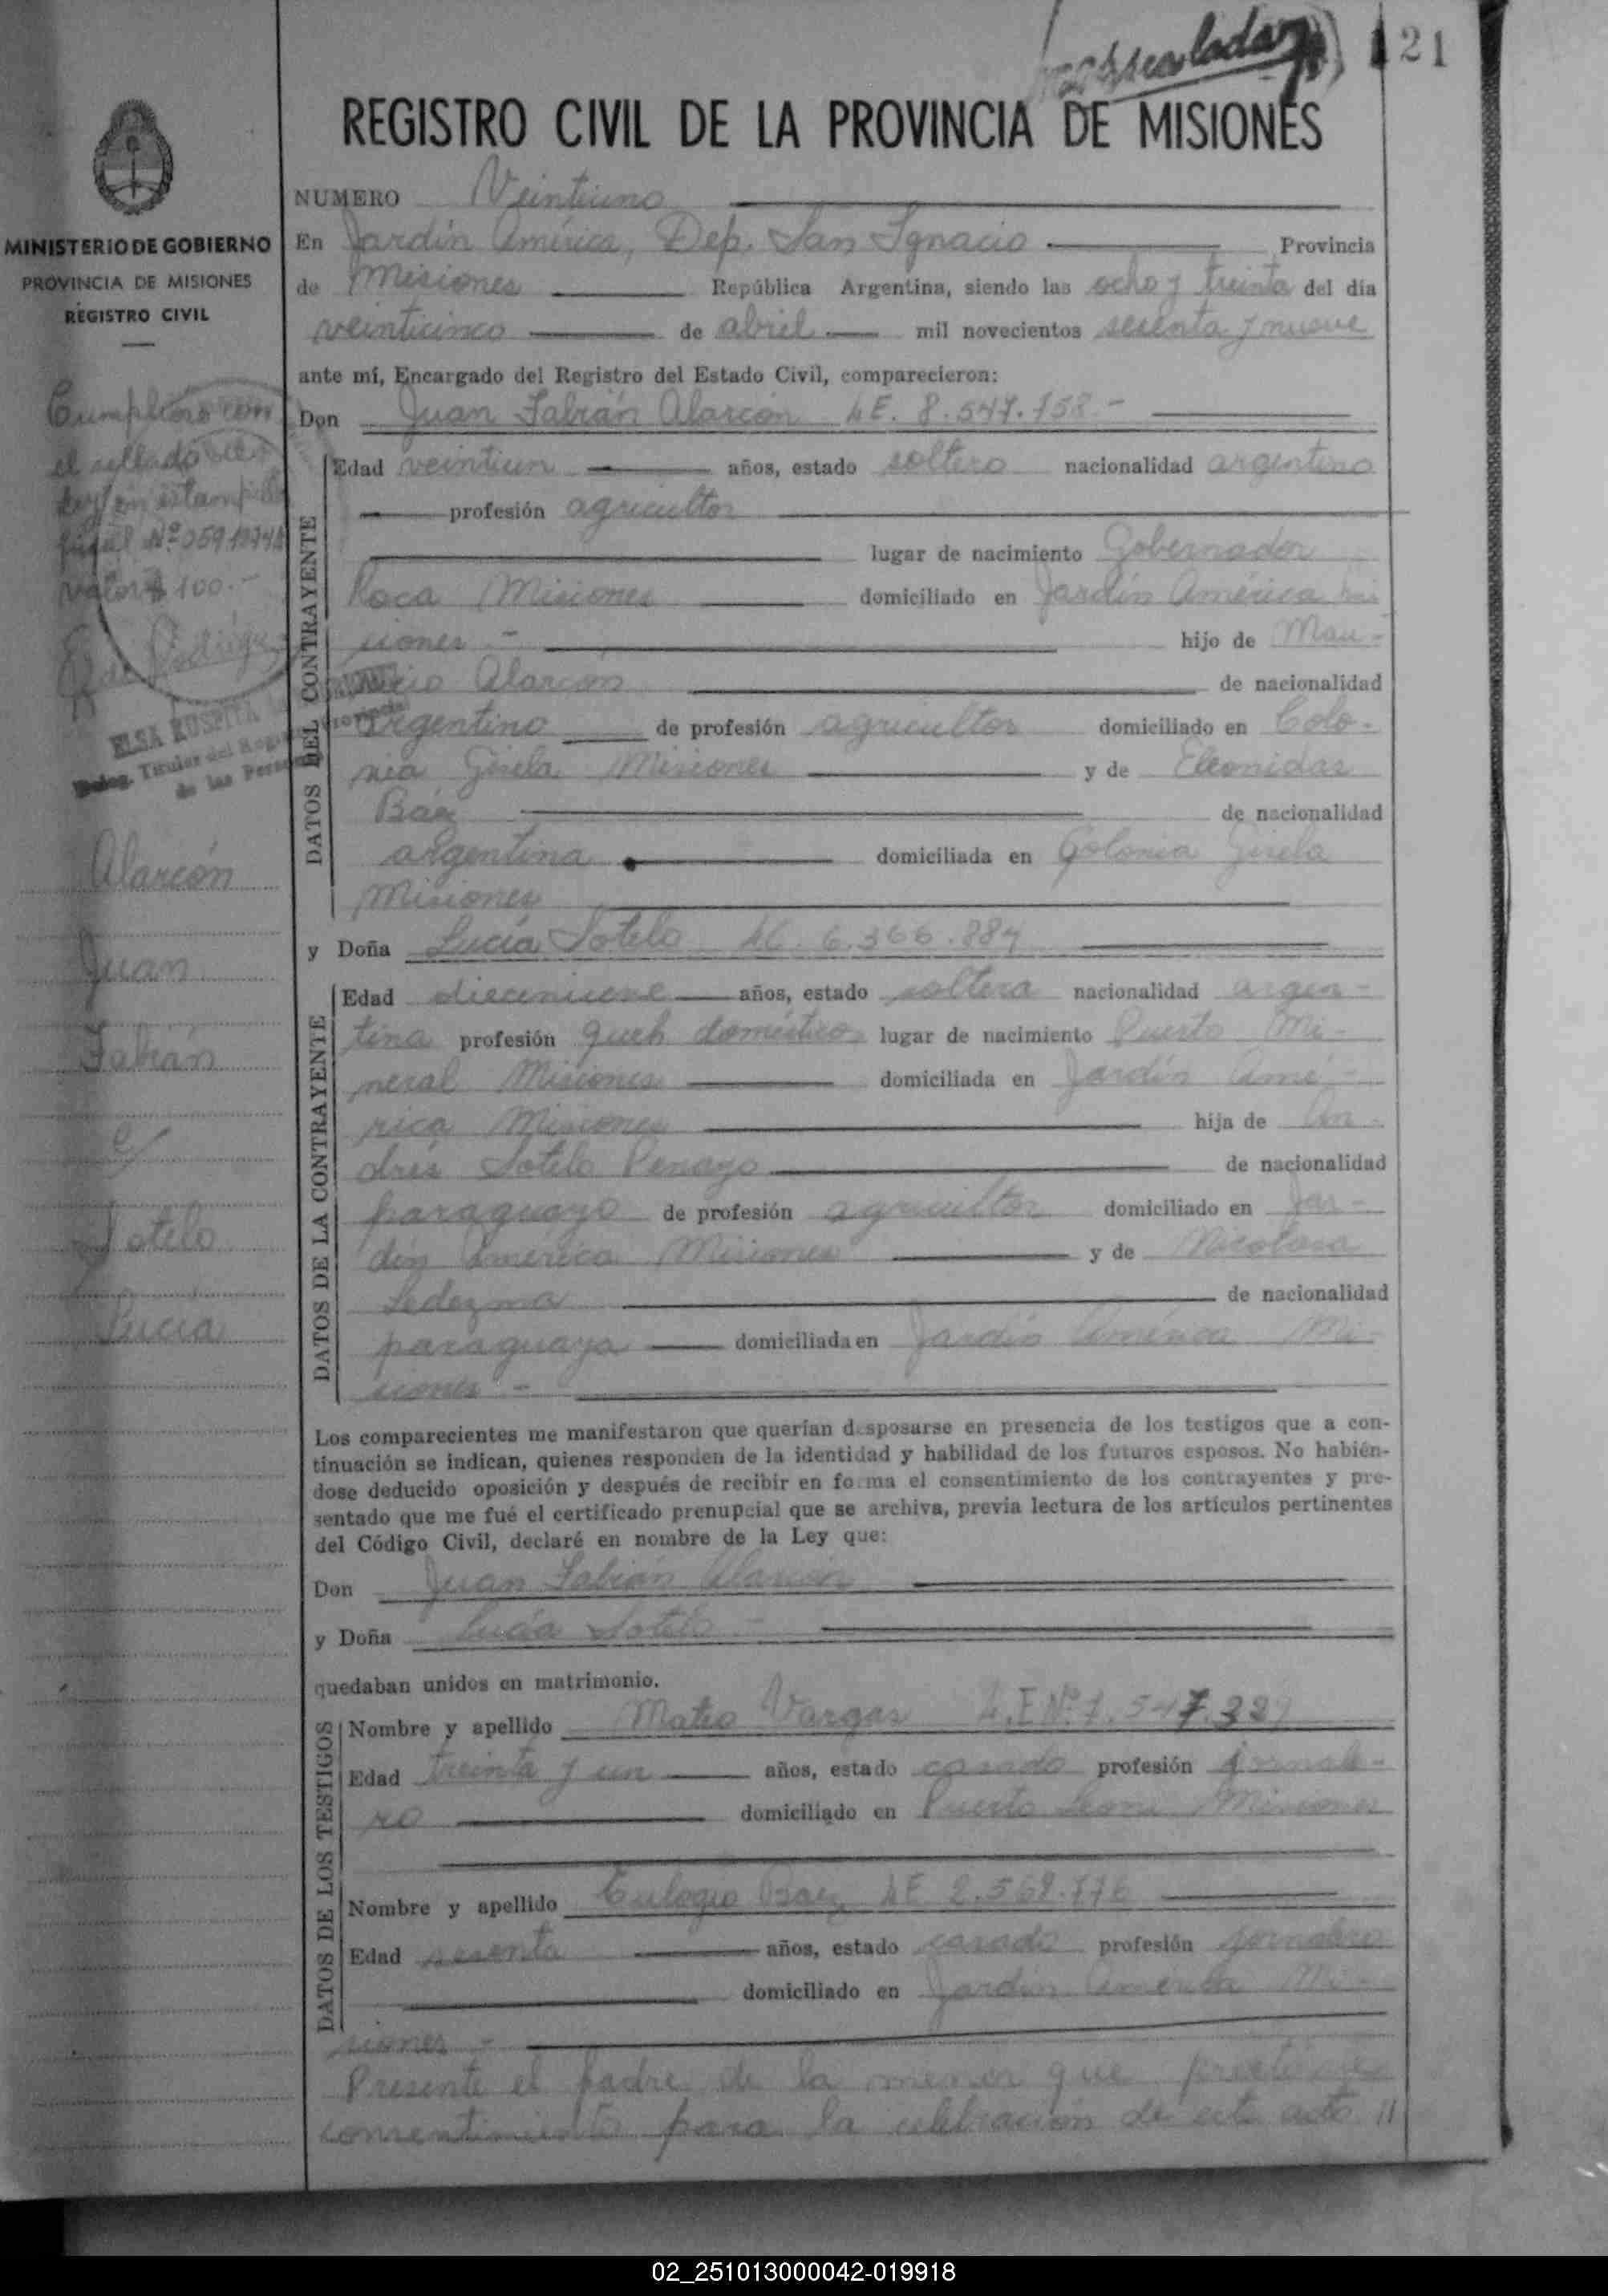 121
REGISTRO CIVIL DE LA PROVINCIA DE MISIONES
MINISTERIO DE GOBIERNO
PROVINCIA DE MISIONES
REGISTRO CIVIL
Cumplióse con
el sellado de
ley en estampilla
fiscal Nº
valor $ 100.-
ELSA
Titular del
de las
Alarcón
Juan
Fabián
c/
Sotelo
Lucía
NUMERO Veintiuno
En Jardín América, Dep. San Ignacio Provincia
de Misiones República Argentina, siendo las ocho y treinta del día
veinticinco de abril mil novecientos sesenta y nueve
ante mí, Encargado del Registro del Estado Civil, comparecieron:
Don Juan Fabián Alarcón LE. 8.547.158.-
DATOS DEL CONTRAYENTE
Edad veintiun años, estado soltero nacionalidad argentino
profesión agricultor
lugar de nacimiento Gobernador
Roca Misiones domiciliado en Jardín América Mi
siones - hijo de Mau-
ricio Alarcón de nacionalidad
argentino de profesión agricultor domiciliado en Colo-
nia Gisela Misiones y de Eleonidas
Báez de nacionalidad
argentina domiciliada en Colonia Gisela
Misiones
y Doña Lucía Sotelo LC 6.366.884
DATOS DE LA CONTRAYENTE
Edad diecinueve años, estado soltera nacionalidad argen-
tina profesión queh domésticos lugar de nacimiento Puerto Mi-
neral Misiones domiciliada en Jardín Amé-
rica Misiones hija de An-
drés Sotelo Penayo de nacionalidad
paraguayo de profesión agricultor domiciliado en Jar-
dín América Misiones y de Nicolasa
Ledezma de nacionalidad
paraguaya domiciliada en Jardín América Mi-
siones -
Los comparecientes me manifestaron que querían desposarse en presencia de los testigos que a con-
tinuación se indican, quienes responden de la identidad y habilidad de los futuros esposos. No habién-
dose deducido oposición y después de recibir en forma el consentimiento de los contrayentes y pre-
sentado que me fué el certificado prenupcial que se archiva, previa lectura de los artículos pertinentes
del Código Civil, declaré en nombre de la Ley que:
Don Juan Fabián Alarcón
y Doña Lucía Sotelo -
quedaban unidos en matrimonio.
DATOS DE LOS TESTIGOS
Nombre y apellido Mateo Vargas L.E Nº 7.547.329
Edad treinta y un años, estado casado profesión jornale-
ro domiciliado en Puerto Leoni Misiones
Nombre y apellido Eulogio Baez LE 2.562.776
Edad sesenta años, estado casado profesión jornalero
domiciliado en Jardín América Mi-
siones -
Presente el padre de la menor que
consentimiento para la celebración de este acto //
02_251013000042-019918